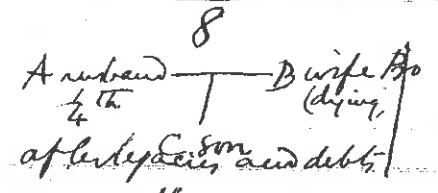 8
A husband B wife
1/4 th (dying)
C son
after legacies and debts